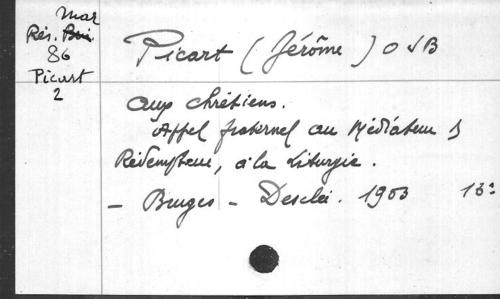 mar
Rés.
86
Picart
2
Picart (Jérôme) OSB
aux chrétiens.
Appel fraternel au Médiateur &
Rédempteur, à la Liturgie.
— Bruges — Desclée. 1903